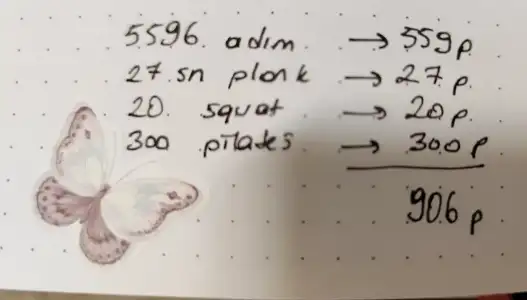 5596. adım. → 559 p.
27.sn plank → 27 p.
20. squat → 20 p.
300 pilates → 300 p
906 p